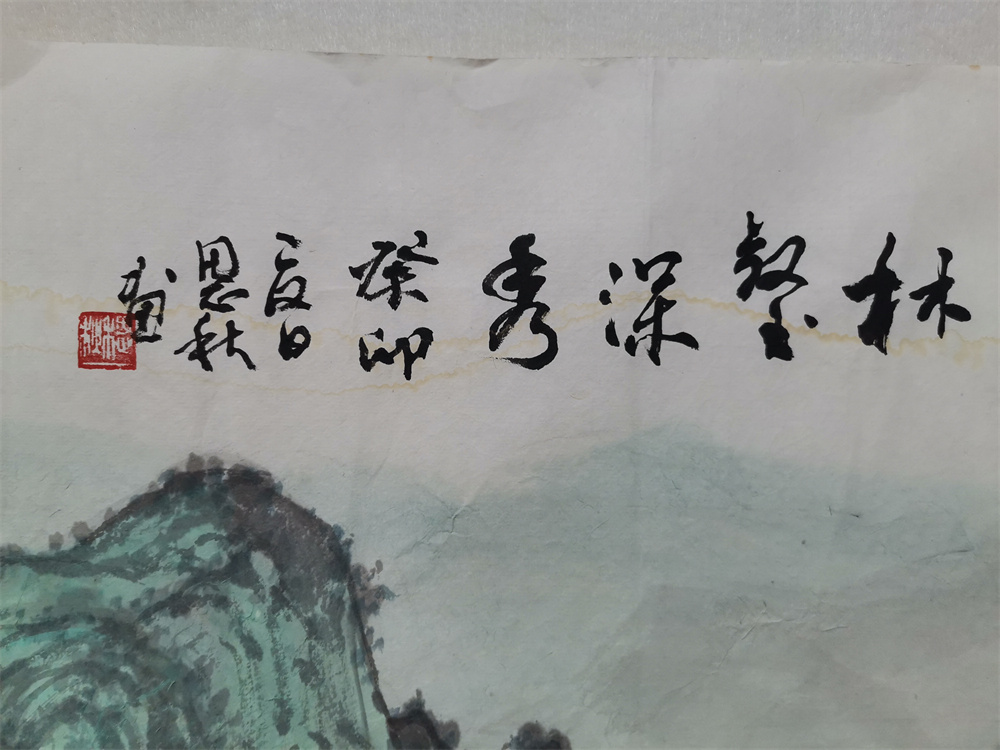 林壑深秀
癸卯
夏日
思秋
画